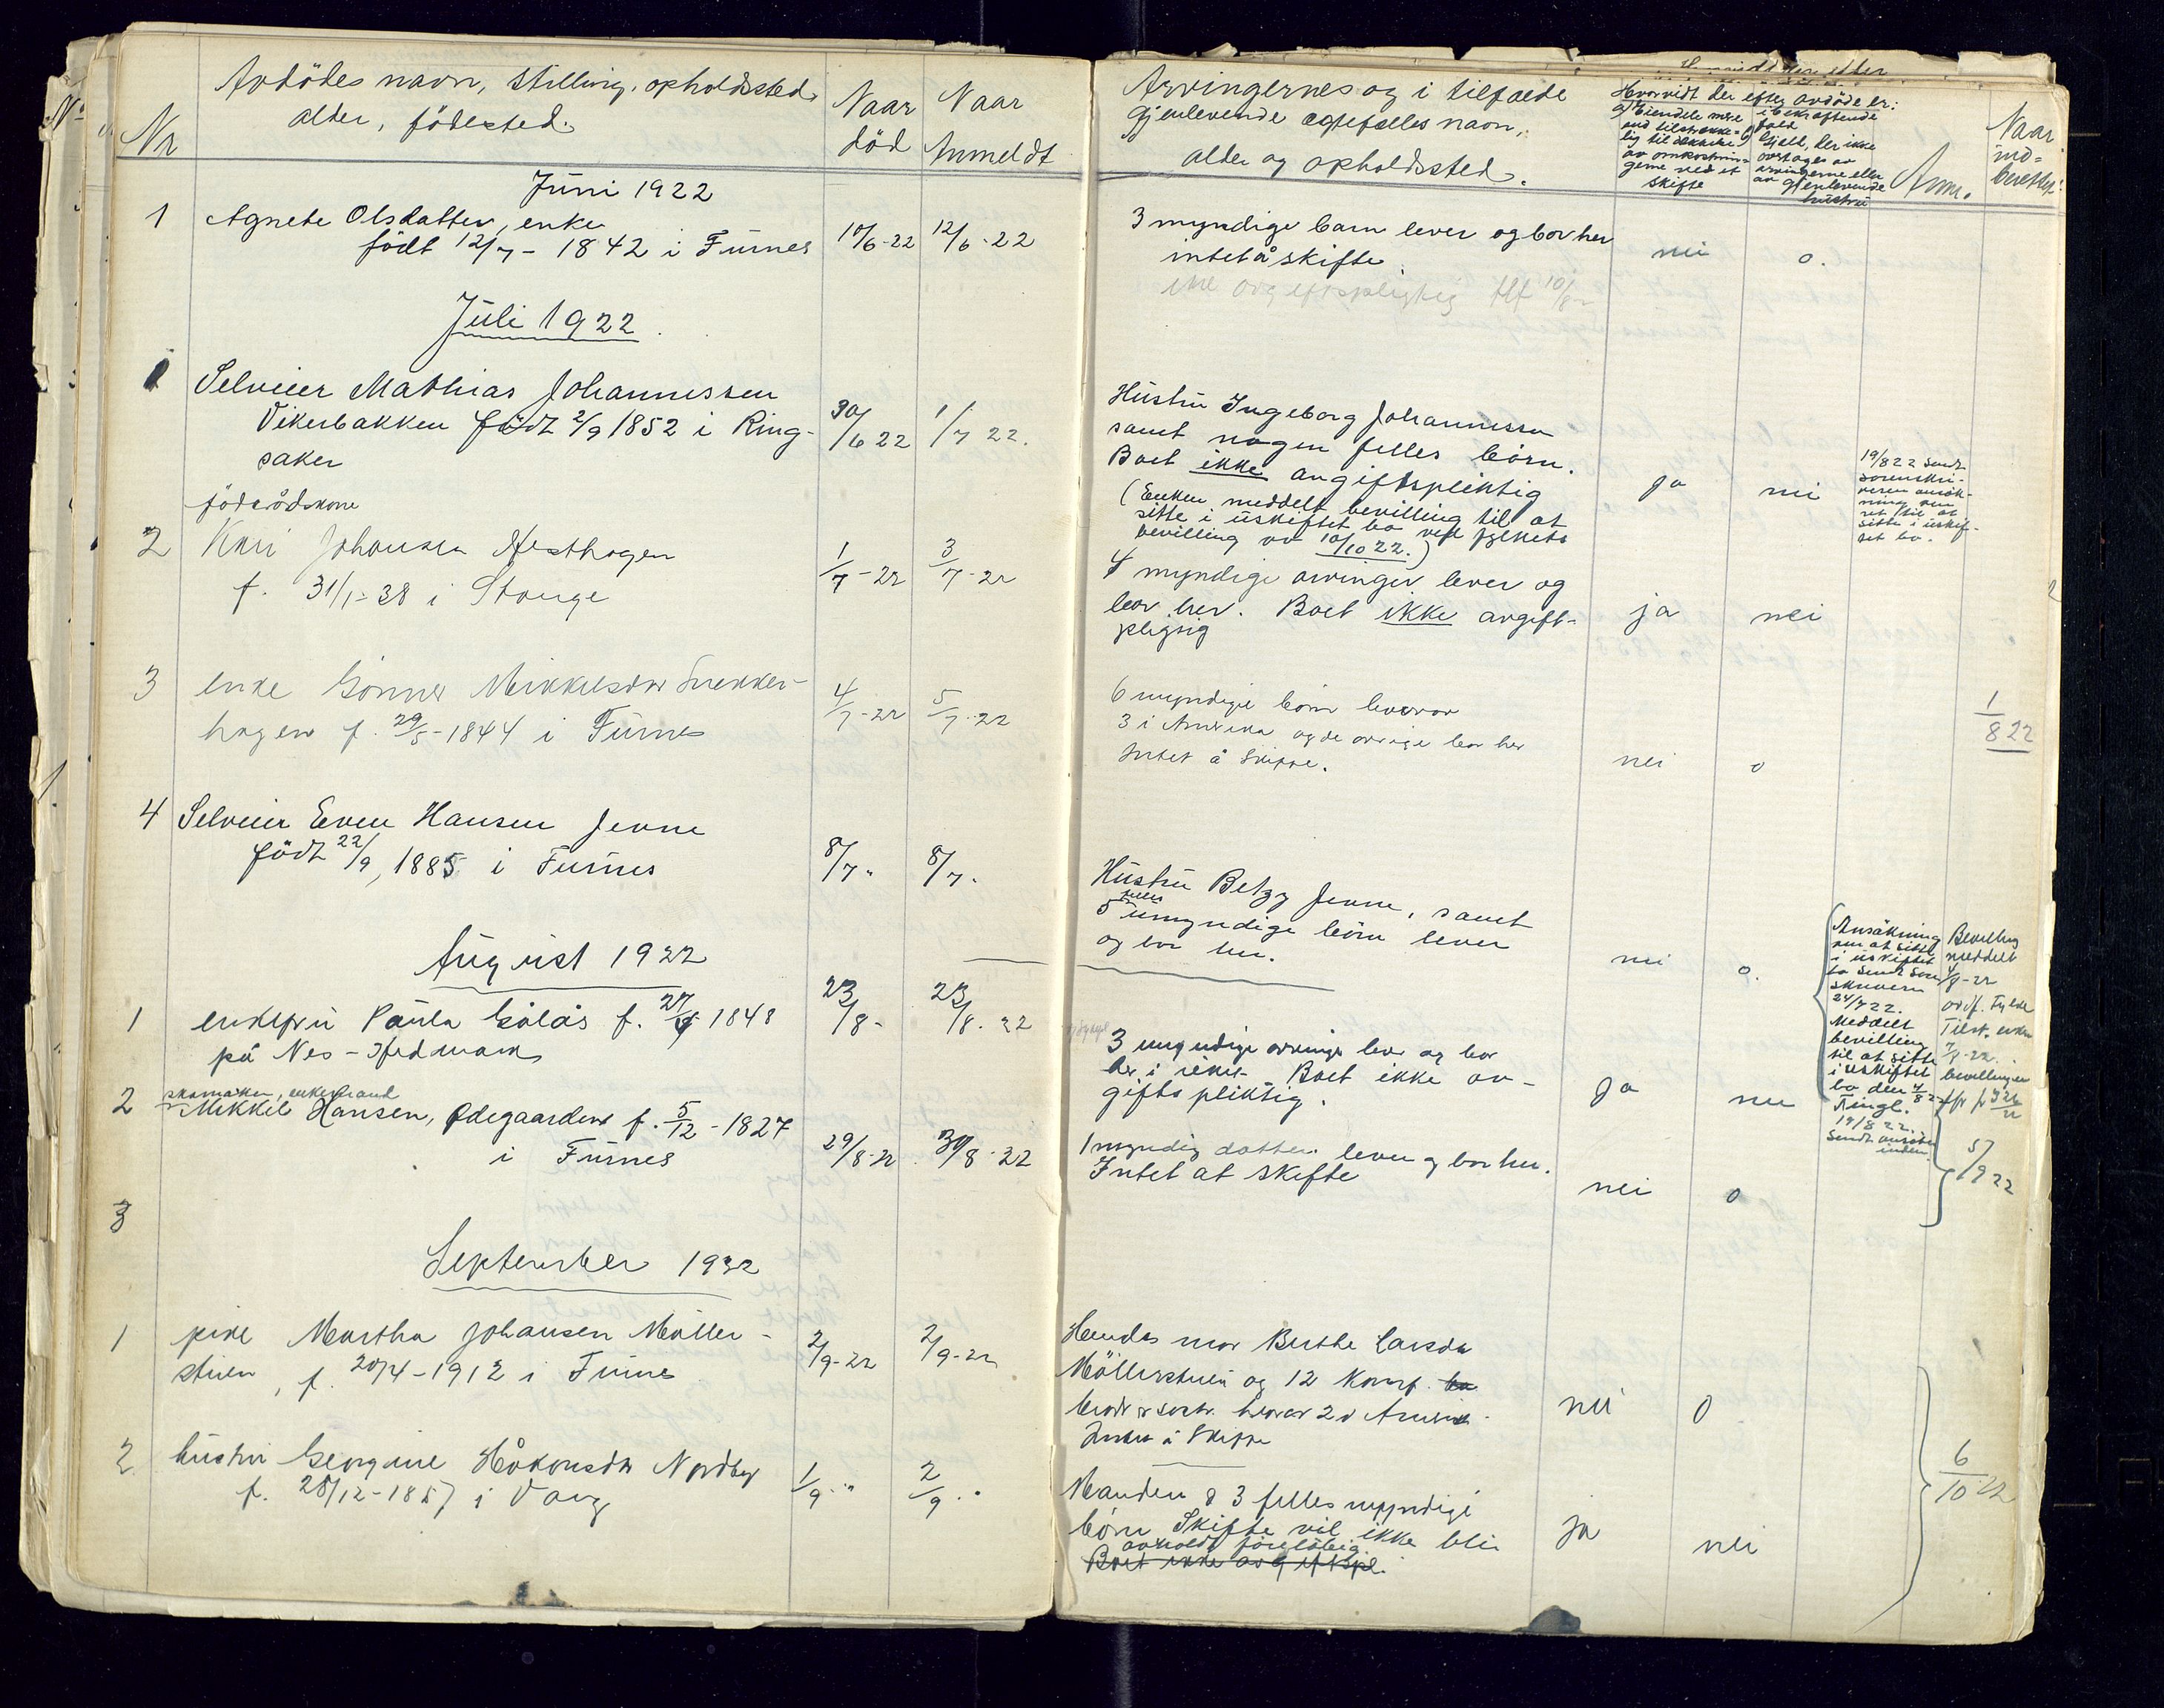 Nr
Avdödes navn, stilling, opholdssted
alder, födested.
Naar
död
Naar
Anmeldt
Juni 1922
1 Agnete Olsdatter, enke
födt 12/7 - 1842 i Furnes
10/6-22 12/6-22
Juli 1922
1 Selveier Mathias Johannessen
Vikerbakken födt 2/9 1852 i Ring-
saker
30/6 22 1/7 22.
föderådskone
2 Kari Johansen Hesthagen
f. 31/1-38 i Stange
1/7-22 3/7-22
3 enke Gönner Mikkelsdtr Snekker-
hagen f. 29/5-1844 i Furnes
4/7-22 5/7-22
4 Selveier Even Hansen Jevne
födt 22/9 1885 i Furnes
8/7" 8/7.
August 1922
1 enkefru Paula Gölås f. 1848
på Nes-Hedmark
23/8- 23/8.22
skomaker, enkemand
2 Mikkel Hansen, Ødegaarden f. 5/12-1827
i Furnes
29/8-22 30/8-22
3
September 1922
1 pike Martha Johansen Möller-
stuen, f. 20/4-1912 i Furnes
2/9-22 2/9-22
2 hustru Georgine Håkonsdtr Nordby
f. 28/12-1857 i Vang
1/9." 2/9.."
Arvingernes og i tilfælde
gjenlevende ægtefælles navn,
alder og opholdssted.
Hvorvidt der efter avdöde er:
a) Eiendele mere
end tilstrække-
lig til dækkelse
av omkostnin-
gerne ved et
skifte
i bekræftende
fald
b) Gjæld, der ikke
overtages av
arvingerne eller
av gjenlevende
hustru
Anm.
Naar
ind-
berettet.
3 myndige barn lever og bor her
intet å skifte
ikke avgiftspligtig tlf 10/8-22
nei o.
Hustru Ingeborg Johannessen
samt nogen felles börn.
Boet ikke avgiftspliktig
(Enken meddelt bevilling til at
sitte i uskiftet bo ved fylkets
bevilling av 10/10 22.)
ja nei
19/8 22 sendt
sorenskri-
veren ansök-
ning om
ret til at
sitte i uskif-
tet bo.
4 myndige arvinger lever og
bor her. Boet ikke avgift-
pligtig
ja nei
6 myndige börn hvorav
3 i Amerika og de övrige bor her
Intet å skifte.
nei o
1/8 22
Hustru Betzy Jevne, samt
felles
5 umyndige börn lever
og bor her.
nei o.
Ansökning
om at sitte
i uskiftet
bo sendt Soren
skriveren
24/7 22.
Meddelt
bevilling
til at sitte
i uskiftet
bo den 4/8 22
Tingl.
19/8 22.
Sendt
Bevilling
meddelt
4/8-22
av f. Fylke
Tilst. enken
7/8-22.
bevillingen
3 myndige arvinger lever og bor
her i riket. Boet ikke av-
giftspliktig.
ja nei
1 myndig datter lever og bor her.
Intet at skifte
nei o
5/9 22
Hendes mor Berthe Larsdtr
Möllerstuen og 12
brödr og söstr. hvorav 2 i Amerika.
Intet å skifte
nei O
6/10 22
Manden & 3 felles myndige
börn Skifte vil ikke bli
avholdt foreløbig.
Boet ikke avgiftspl.
ja nei